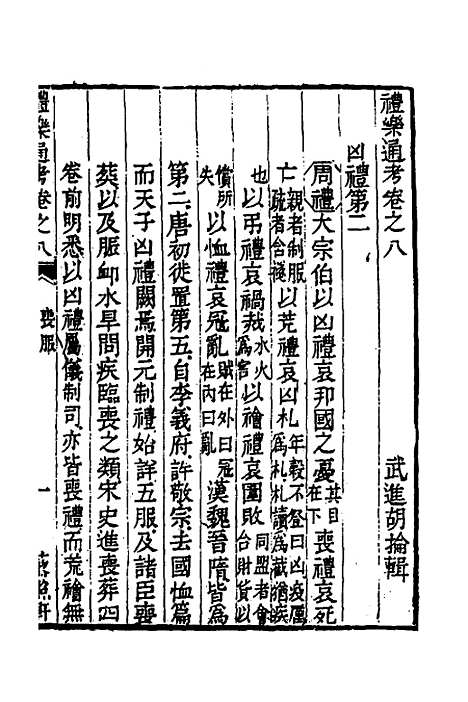 禮樂通考卷之八
武進胡掄輯
凶禮第二
周禮大宗伯以凶禮哀邦國之憂其目在下喪禮哀死
亡親者制服疏者含襚以荒禮哀凶札年穀不登曰凶疫厲為札札讀為截猶疾
也以弔禮哀禍烖水火為害以禬禮哀圍敗同盟者會合財貨以
償所失以恤禮哀寇亂賊在外曰寇在內曰亂漢魏晉隋皆為
第二唐初徙置第五自李義府許敬宗去國恤篇
而天子凶禮闕焉開元制禮始詳五服及諸臣喪
葬以及賑卹水旱問疾臨喪之類宋史進喪葬四
卷前明悉以凶禮屬儀制司亦皆喪禮而荒禬無
禮樂通考卷之八
喪服
一